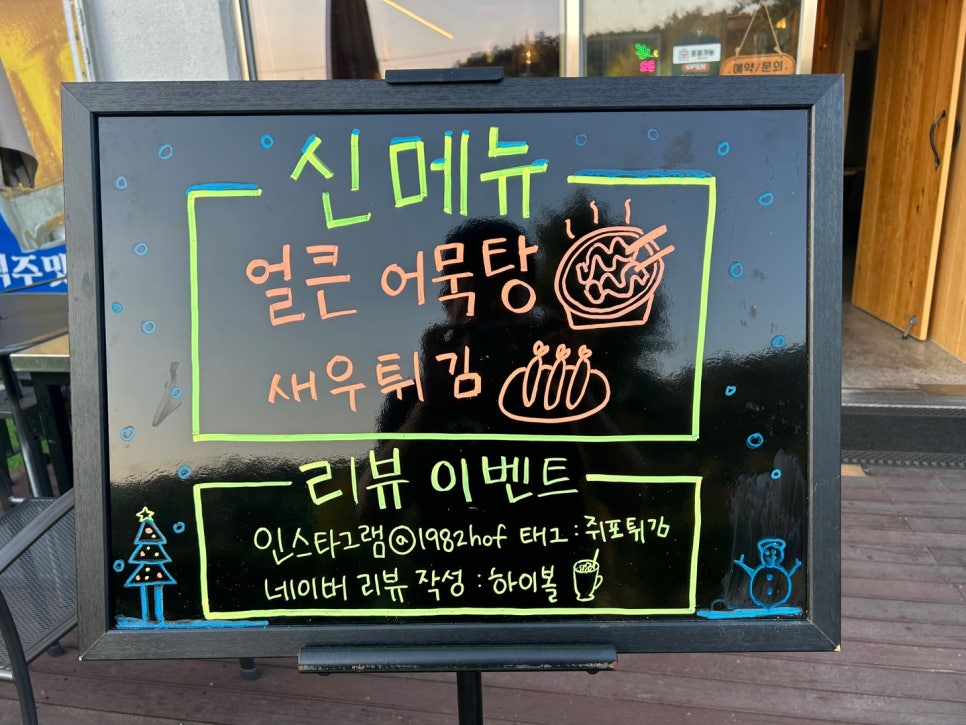 포장가능
OPEN
예약/문의
신메뉴
얼큰 어묵탕
새우튀김
리뷰 이벤트
인스타그램@1982hof 태그:쥐포튀김
네이버 리뷰 작성:하이볼